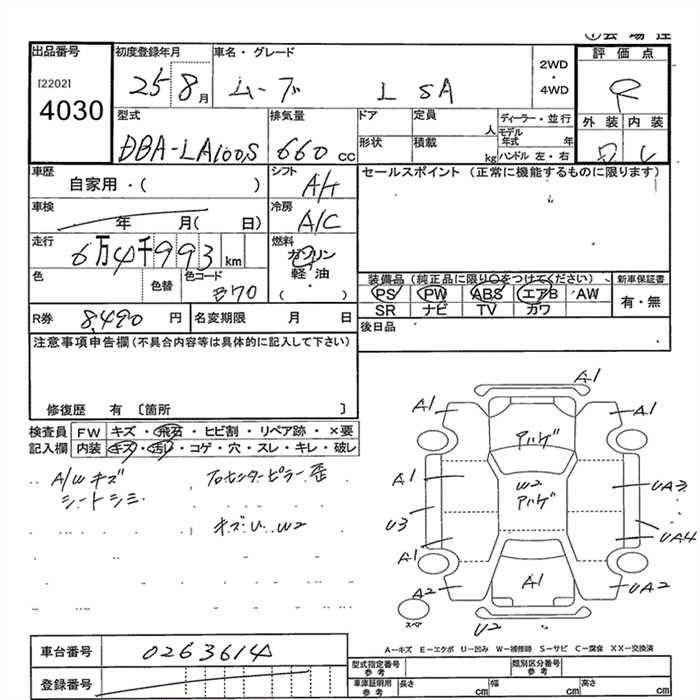 出品番号 初度登録年月 車名・グレード 2WD・4WD 評価点
[2202] 4030 25 8月 ムーブ L SA R
型式 排気量 ドア 定員 人 ディーラー・並行 外装 内装
DBA-LA100S 660cc 形状 積載 kg モデル年式 年 ハンドル 左・右
車歴 自家用・( ) シフト A/t セールスポイント(正常に機能するものに限ります)
車検 年 月( 日) 冷房 A/C
走行 6万4千993km 燃料 ガソリン・軽・油 ( )
色 色替 色コード E70
装備品(純正品に限り○をつけてください) 新車保証書
PS PW ABS エアB AW 有・無
SR ナビ TV カワ
R券 8,490円 名変期限 月 日 後日品
注意事項申告欄(不具合内容等は具体的に記入して下さい)
修復歴 有 〔箇所 〕
検査員 FW キズ・飛石・ヒビ割・リペア跡・×要
記入欄 内装 キズ・汚レ・コゲ・穴・スレ・キレ・破レ
A/Wキズ
シートシミ
センターピラー歪
A1
A1 A1
アハゲ
A1 W2 UA3
アハゲ
U3 UA4
A1
A2 A1 UA2
スペア U2
A-キズ E-エクボ U-凹み W-補修跡 S-サビ C-腐食 XX-交換済
車台番号 0263614
型式指定番号 参考 類別区分番号 参考
登録番号
車庫証明用 参考 長さ cm 幅 cm 高さ cm